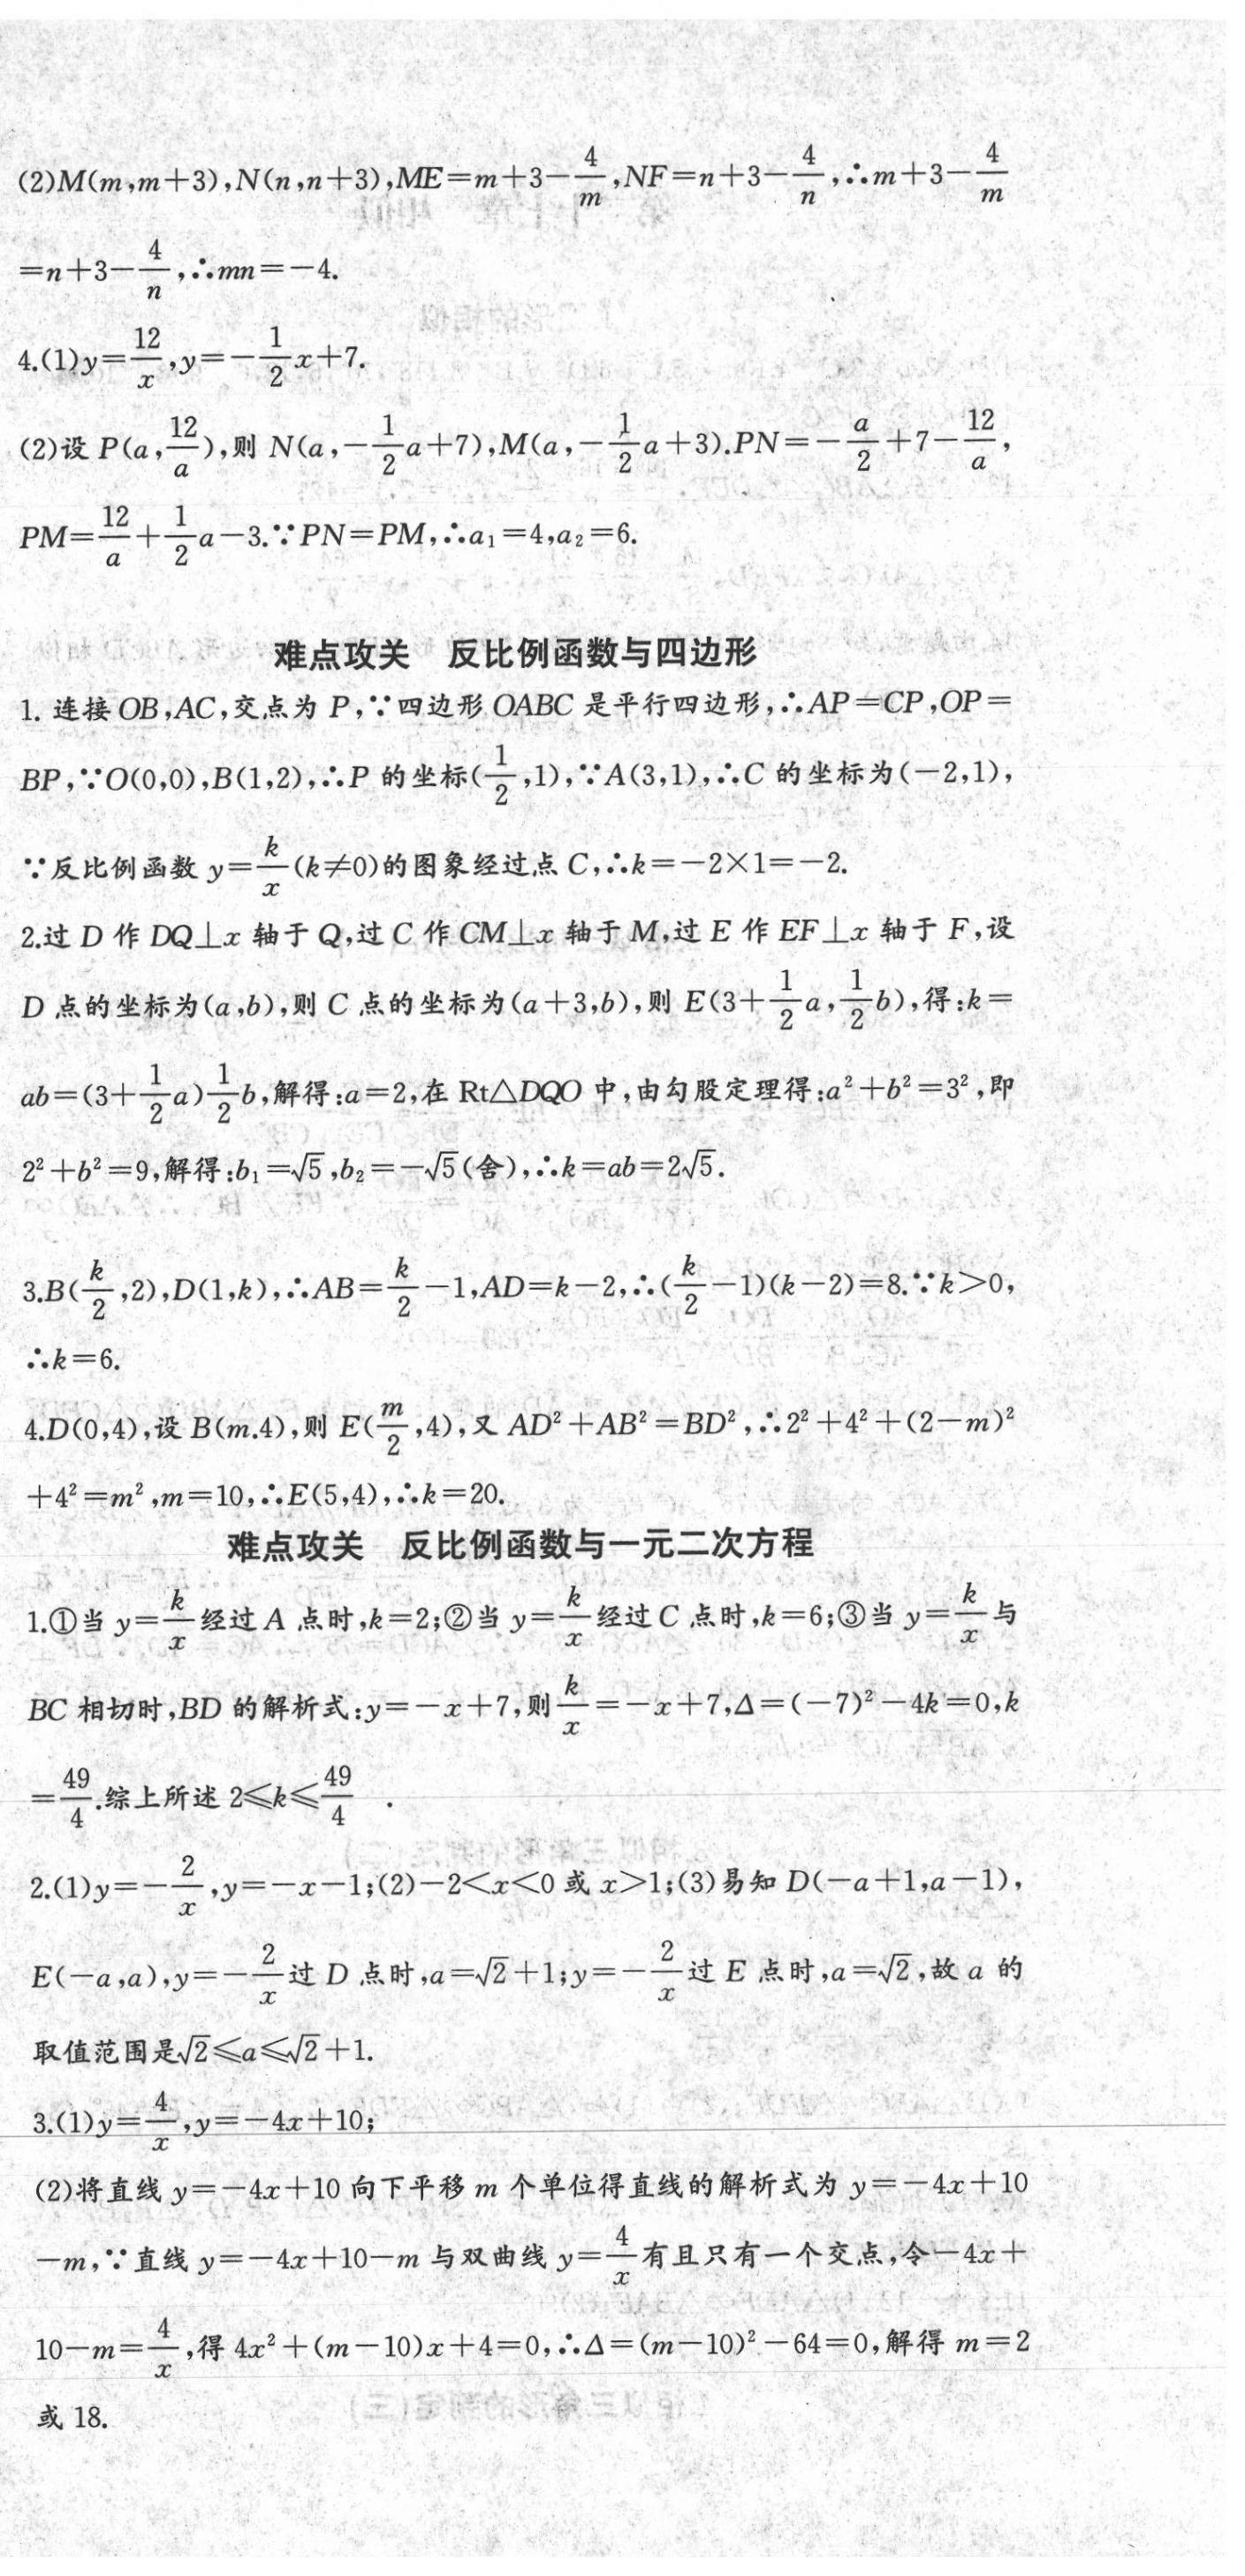 (2)M(m,m+3),N(n,n+3),ME=m+3-4/m,NF=n+3-4/n,∴m+3-4/m
=n+3-4/n,∴mn=-4.
4.(1)y=12/x,y=-1/2x+7.
(2)设 P(a,12/a),则 N(a,-1/2a+7),M(a,-1/2a+3).PN=-a/2+7-12/a,
PM=12/a+1/2a-3.∵PN=PM,∴a₁=4,a₂=6.
难点攻关 反比例函数与四边形
1. 连接 OB,AC,交点为 P,∵四边形 OABC 是平行四边形,∴AP=CP,OP=
BP,∵O(0,0),B(1,2),∴P 的坐标(1/2,1),∵A(3,1),∴C 的坐标为(-2,1),
∵反比例函数 y=k/x(k≠0)的图象经过点 C,∴k=-2×1=-2.
2.过 D 作 DQ⊥x 轴于 Q,过 C 作 CM⊥x 轴于 M,过 E 作 EF⊥x 轴于 F,设
D 点的坐标为(a,b),则 C 点的坐标为(a+3,b),则 E(3+1/2a,1/2b),得:k=
ab=(3+1/2a)1/2b,解得:a=2,在 Rt△DQO 中,由勾股定理得:a²+b²=3²,即
2²+b²=9,解得:b₁=√5,b₂=-√5(舍),∴k=ab=2√5.
3.B(k/2,2),D(1,k),∴AB=k/2-1,AD=k-2,∴(k/2-1)(k-2)=8.∵k>0,
∴k=6.
4.D(0,4),设 B(m.4),则 E(m/2,4),又 AD²+AB²=BD²,∴2²+4²+(2-m)²
+4²=m²,m=10,∴E(5,4),∴k=20.
难点攻关 反比例函数与一元二次方程
1.①当 y=k/x经过 A 点时,k=2;②当 y=k/x经过 C 点时,k=6;③当 y=k/x与
BC 相切时,BD 的解析式:y=-x+7,则k/x=-x+7,Δ=(-7)²-4k=0,k
=49/4.综上所述 2≤k≤49/4 .
2.(1)y=-2/x,y=-x-1;(2)-2<x<0 或 x>1;(3)易知 D(-a+1,a-1),
E(-a,a),y=-2/x过 D 点时,a=√2+1;y=-2/x过 E 点时,a=√2,故 a 的
取值范围是√2≤a≤√2+1.
3.(1)y=4/x,y=-4x+10;
(2)将直线 y=-4x+10 向下平移 m 个单位得直线的解析式为 y=-4x+10
-m,∵直线 y=-4x+10-m 与双曲线 y=4/x有且只有一个交点,令-4x+
10-m=4/x,得 4x²+(m-10)x+4=0,∴Δ=(m-10)²-64=0,解得 m=2
或 18.